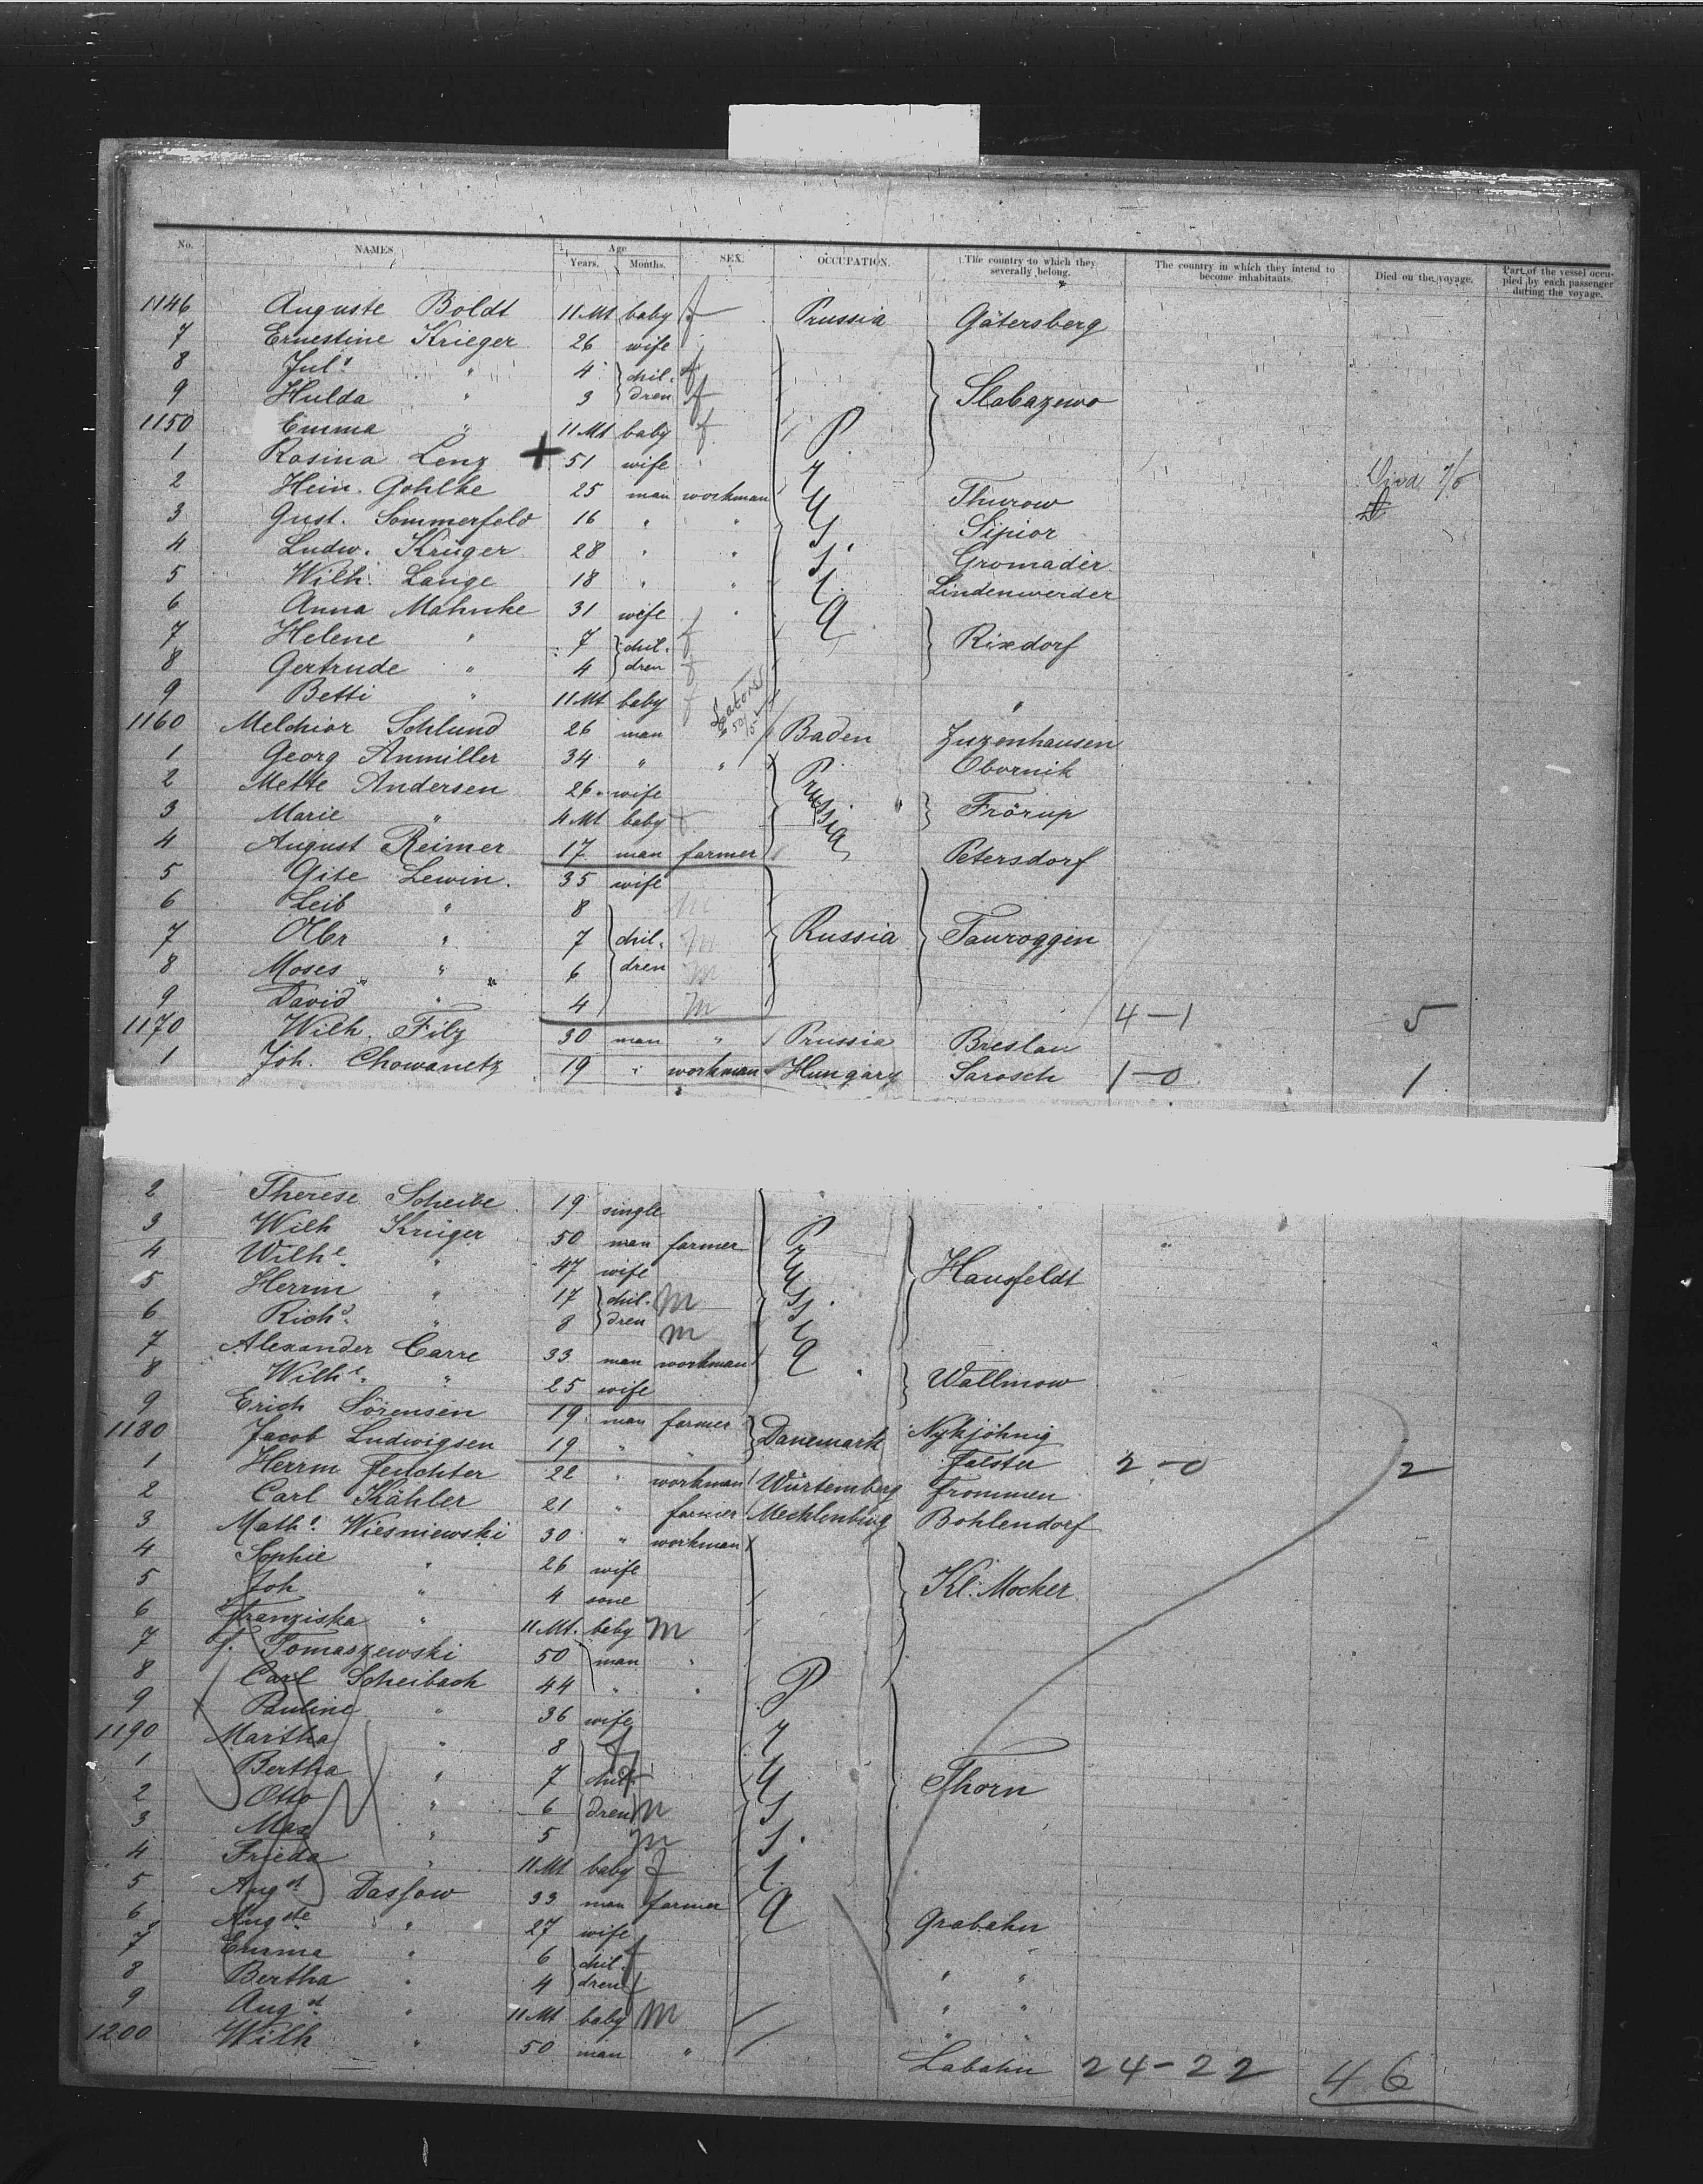 No. NAMES Age Years. Months. SEX. OCCUPATION. The country to which they severally belong. The country in which they intend to become inhabitants. Died on the voyage. Part of the vessel occupied by each passenger during the voyage.
1146 Auguste Boldt 11 Mt baby f Prussia Gätersberg
7 Ernestine Krieger 26 wife
8 Juls " 4 chil- f
9 Hulda " 3 dren f Slabazewo
1150 Emma " 11 Mt baby f
1 Rosina Lenz + 51 wife
2 Hein. Gohlke 25 man workman Thurow
3 Gust. Sommerfeld 16 " " Sipior
4 Ludw. Krüger 28 " " Gromader
5 Wilh. Lange 18 " " Lindenwerder
6 Anna Mahnke 31 wife " Prussia
7 Helene " 7 chil- f Rixdorf
8 Gertrude " 4 dren f
9 Betti " 11 Mt baby f "
1160 Melchior Schlund 26 man " Baden Zuzenhausen
1 Georg Anmiller 34 " " Obornik
2 Mette Andersen 26 wife Prussia
3 Marie " 4 Mt baby f Frörup
4 August Reimer 17 man farmer Petersdorf
5 Gite Lewin. 35 wife
6 Leib " 8 m
7 " 7 chil- m Russia Tauroggen
8 Moses " 6 dren m
9 David " 4 m 4-1 5
1170 Wilh. Filz 30 man " Prussia Breslau
1 Joh. Chowanetz 19 " workman Hungary Sarosch 1-0 1
2 Therese Scheibe 19 single
3 Wilh Krüger 50 man farmer
4 Wilhe " 47 wife Hausfeldt
5 Herrm " 17 chil- m
6 Richd " 8 dren m Prussia
7 Alexander Carre 33 man workman
8 Wilhe " 25 wife Wallmow
9 Erich Sörensen 19 man farmer Danemark Nykjöhnig
1180 Jacob Ludwigsen 19 " " Falster 2-0 2
1 Herrm Feuchter 22 " workman Würtemberg Frommen
2 Carl Kähler 21 " farmer Mecklenburg Bohlendorf
3 Maths Wiesniewski 30 " workman
4 Sophie " 26 wife
5 Joh " 4 sone Kl. Mocker
6 Franziska " 11 Mt. baby m
7 J. Tomaszewski 50 man "
8 Carl Scheibach 44 " "
9 Pauline " 36 wife
1190 Martha " 8 f
1 Bertha " 7 chil- f Thorn
2 Otto " 6 dren m
3 Max " 5 m
4 Frieda " 11 Mt baby f
5 Augst Dassow 33 man farmer Prussia
6 Augste " 27 wife Grabahn
7 Emma " 6 chil- f
8 Bertha " 4 dren f " "
9 Augst " 11 Mt baby m " "
1200 Wilh " 50 man " Labahn 24-22 46